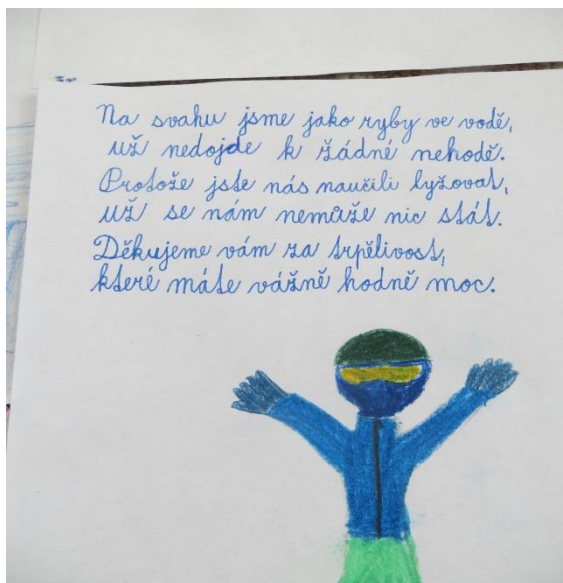 Na svahu jsme jako ryby ve vodě,
už nedojde k žádné nehodě.
Protože jste nás naučili lyžovat,
už se nám nemůže nic stát.
Děkujeme vám za trpělivost,
které máte vážně hodně moc.